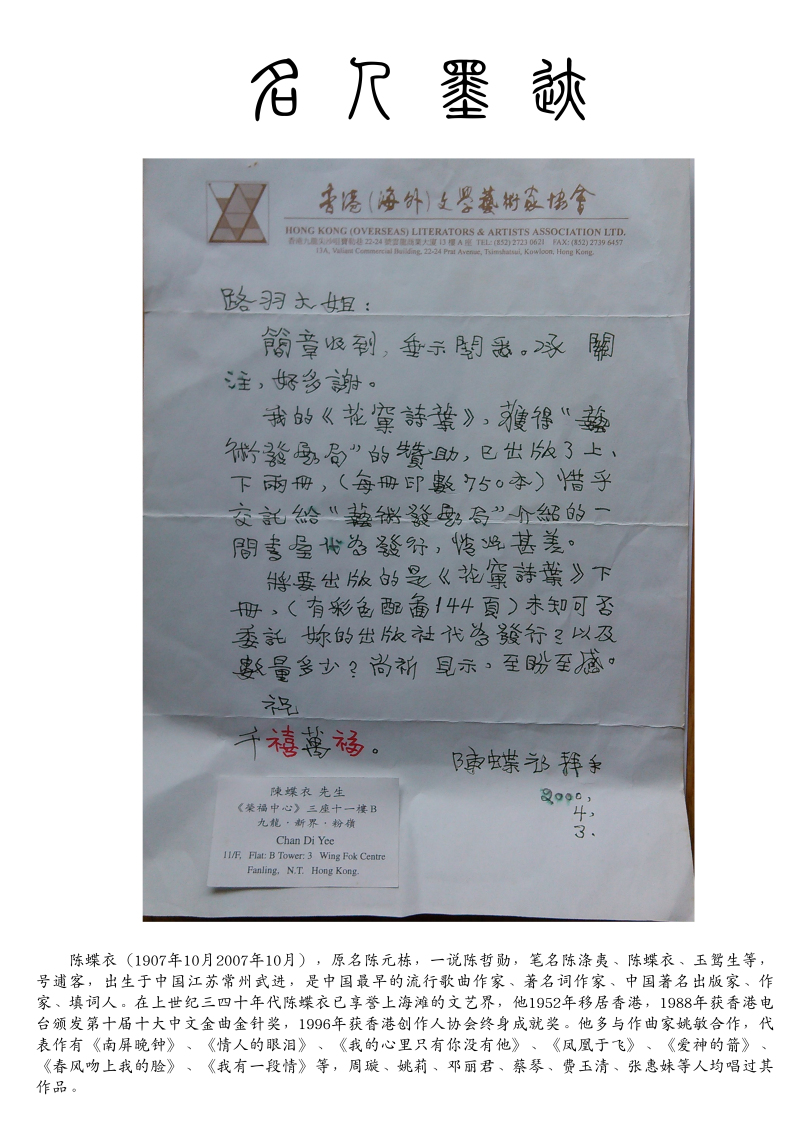 名人墨迹
香港(海外)文學藝術家協會
HONG KONG (OVERSEAS) LITERATORS & ARTISTS ASSOCIATION LTD.
香港九龍尖沙咀寶勒巷 22-24 號雲龍商業大廈 13 樓 A 座 TEL: (852) 2723 0621 FAX: (852) 2739 6457
13A, Valiant Commercial Building, 22-24 Prat Avenue, Tsimshatsui, Kowloon. Hong Kong.
路羽大姐：
簡章收到，垂示閱悉。承 關
注，好多謝。
我的《花窠詩葉》，獲得“藝
術發展局”的贊助，已出版了上、
下兩冊，（每冊印數750本）惜乎
交託給“藝術發展局”介紹的一
間書屋代為發行，情況甚差。
將要出版的是《花窠詩葉》下
冊，（有彩色配畫144頁）未知可否
委託 妳的出版社代為發行？以及
數量多少？尚祈 見示，至盼至感。
祝
千禧萬福。
陳蝶衣 拜手
2000,
4,
3.
陳蝶衣 先生
《榮福中心》三座十一樓B
九龍·新界·粉嶺
Chan Di Yee
11/F, Flat: B Tower: 3 Wing Fok Centre
Fanling, N.T. Hong Kong.
陈蝶衣（1907年10月2007年10月），原名陈元栋，一说陈哲勋，笔名陈涤夷、陈蝶衣、玉鸳生等，
号逋客，出生于中国江苏常州武进，是中国最早的流行歌曲作家、著名词作家、中国著名出版家、作
家、填词人。在上世纪三四十年代陈蝶衣已享誉上海滩的文艺界，他1952年移居香港，1988年获香港电
台颁发第十届十大中文金曲金针奖，1996年获香港创作人协会终身成就奖。他多与作曲家姚敏合作，代
表作有《南屏晚钟》、《情人的眼泪》、《我的心里只有你没有他》、《凤凰于飞》、《爱神的箭》、
《春风吻上我的脸》、《我有一段情》等，周璇、姚莉、邓丽君、蔡琴、费玉清、张惠妹等人均唱过其
作品。